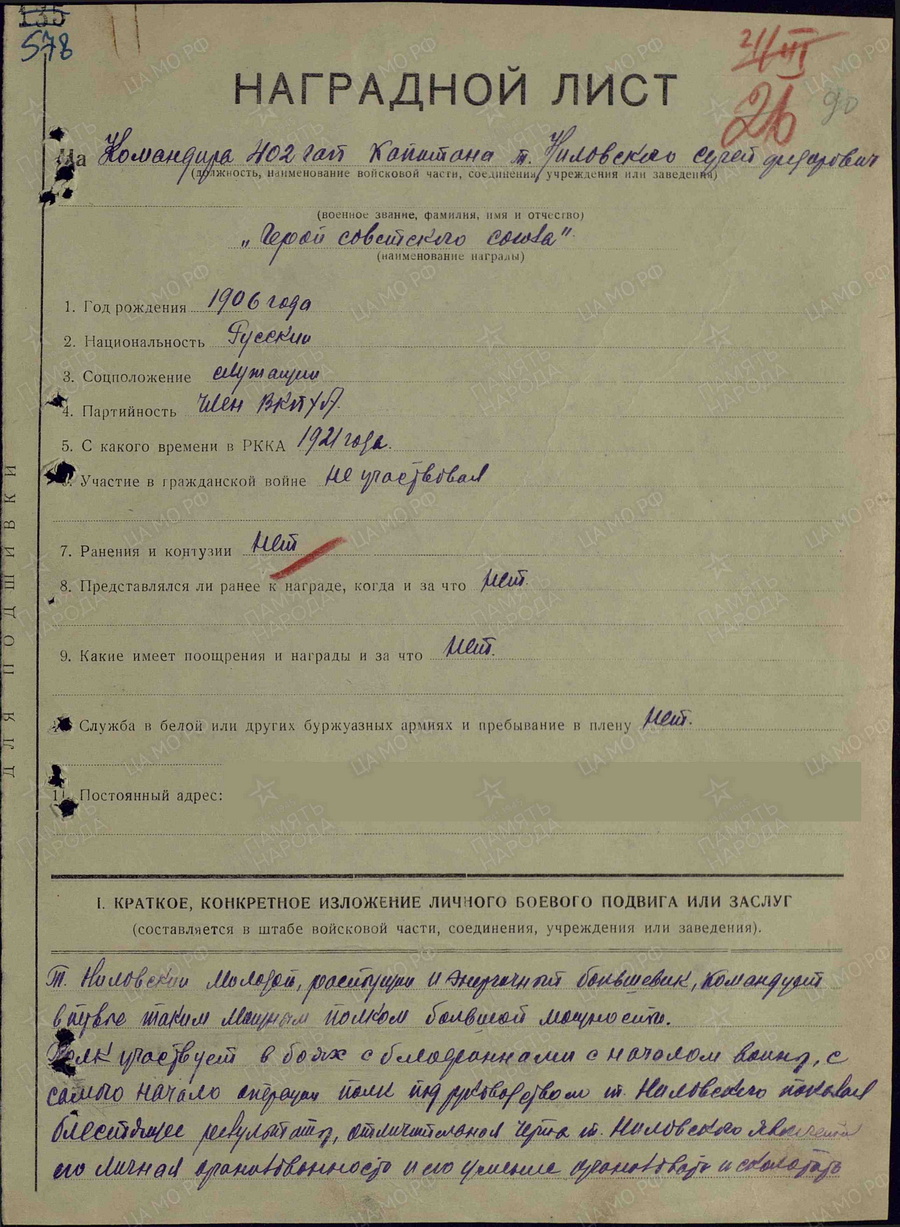 135
578
21/III
26
90
НАГРАДНОЙ ЛИСТ
На Командира 402 гап капитана т. Ниловского сергей фидарович
(должность, наименование войсковой части, соединения, учреждения или заведения)
(военное звание, фамилия, имя и отчество)
„Герой советского союза"
(наименование награды)
1. Год рождения 1906 года
2. Национальность Русский
3. Соцположение служащий
4. Партийность член ВКП(б).
5. С какого времени в РККА 1921 года.
Участие в гражданской войне не участвовал
7. Ранения и контузии нет
8. Представлялся ли ранее к награде, когда и за что нет.
9. Какие имеет поощрения и награды и за что нет.
Служба в белой или других буржуазных армиях и пребывание в плену нет.
11. Постоянный адрес:
ДЛЯ ПОДШИВКИ
I. КРАТКОЕ, КОНКРЕТНОЕ ИЗЛОЖЕНИЕ ЛИЧНОГО БОЕВОГО ПОДВИГА ИЛИ ЗАСЛУГ
(составляется в штабе войсковой части, соединения, учреждения или заведения).
Т. Ниловский Молодой, растущий и энергичный большевик, командует
впервые таким мощным полком большой мощности.
Полк участвует в боях с белофиннами с началом войны, с
самого начало операции полк под руководством т. Ниловского показал
блестящие результаты, отличительная черта т. Ниловского является
его личная организованность и его умение организовать и сколотить
ПАМЯТЬ НАРОДА
ЦАМО.РФ